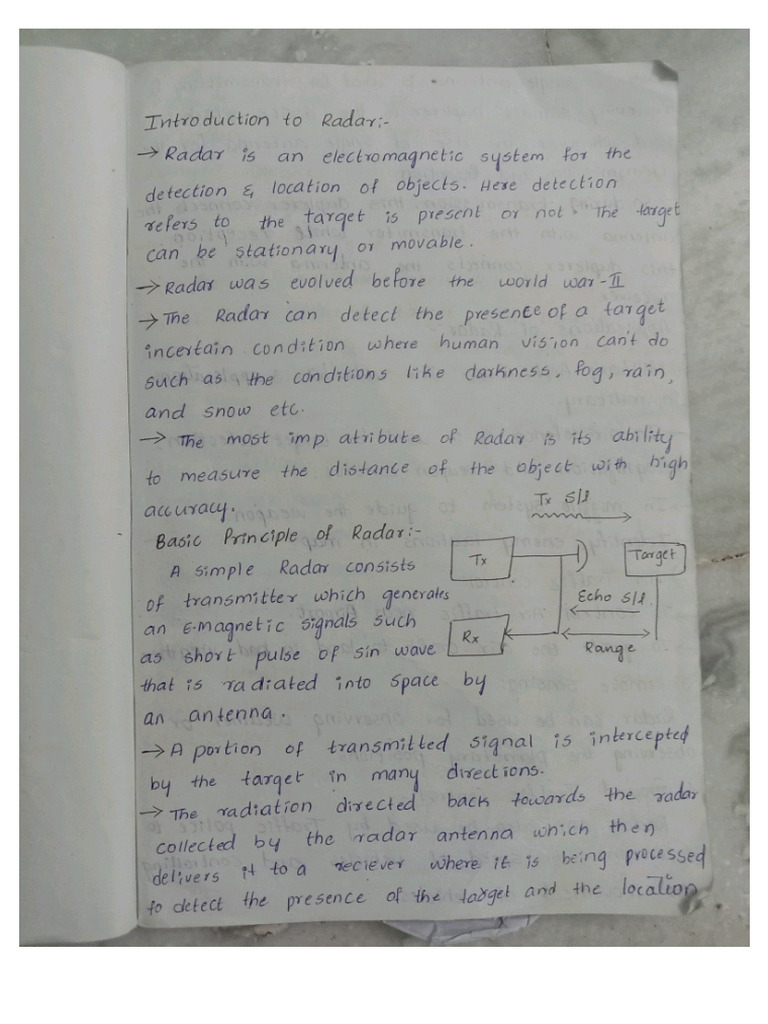 Introduction to Radar:-
→ Radar is an electromagnetic system for the
detection & location of objects. Here detection
refers to the target is present or not. The target
can be stationary or movable.
→ Radar was evolved before the world war-II
→ The Radar can detect the presence of a target
incertain condition where human vision can't do
such as, the conditions like darkness, fog, rain,
and snow etc.
→ The most imp atribute of Radar is its ability
to measure the distance of the object with high
accuracy.
Tx S/l
Basic Principle of Radar:-
Tx
Target
A simple Radar consists
of transmitter which generates
Echo S/l.
an E.Magnetic signals such
Rx
Range
as short pulse of sin wave
that is radiated into space by
an antenna.
→ A portion of transmitted signal is intercepted
by the target in many directions.
→ The radiation directed back towards the radar
collected by the radar antenna which then
delivers it to a reciever where it is being processed
to detect the presence of the target and the location